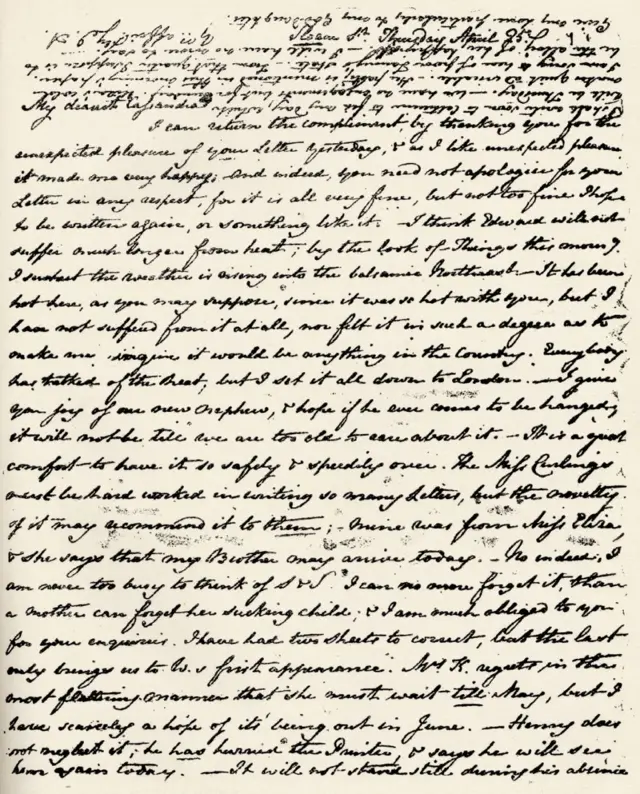 Sloane St. Thursday April 25.
My dearest Cassandra
I can return the compliment, by thanking you for the
unexpected pleasure of your Letter yesterday, & as I like unexpected pleasure
it made me very happy; and indeed, you need not apologise for your
Letter in any respect, for it is all very fine, but not too fine I hope
to be written again, or something like it. – I think Edward will not
suffer much longer from heat; by the look of Things this morng.
I suspect the weather is rising into the balsamic Northeast. – It has been
hot here, as you may suppose, since it was so hot with you, but I
have not suffered from it at all, nor felt it in such a degree as to
make me imagine it would be anything in the Country. Everybody
has talked of the heat, but I set it all down to London. – I give
you joy of our new nephew, & hope if he ever comes to be hanged,
it will not be till we are too old to care about it. – It is a great
comfort to have it so safely & speedily over. The Miss Curlings
must be hard worked in writing so many Letters, but the novelty
of it may recommend it to them; – mine was from Miss Eliza,
& she says that my Brother may arrive today. – No indeed, I
am never too busy to think of S & S. I can no more forget it, than
a mother can forget her sucking child; & I am much obliged to you
for your enquiries. I have had two sheets to correct, but the last
only brings us to W.s first appearance. Mrs. K. regrets in the
most flattering manner that she must wait till May, but I
have scarcely a hope of its being out in June. – Henry does
not neglect it; he has hurried the Printer, & says he will see
him again today. – It will not stand still during his absence